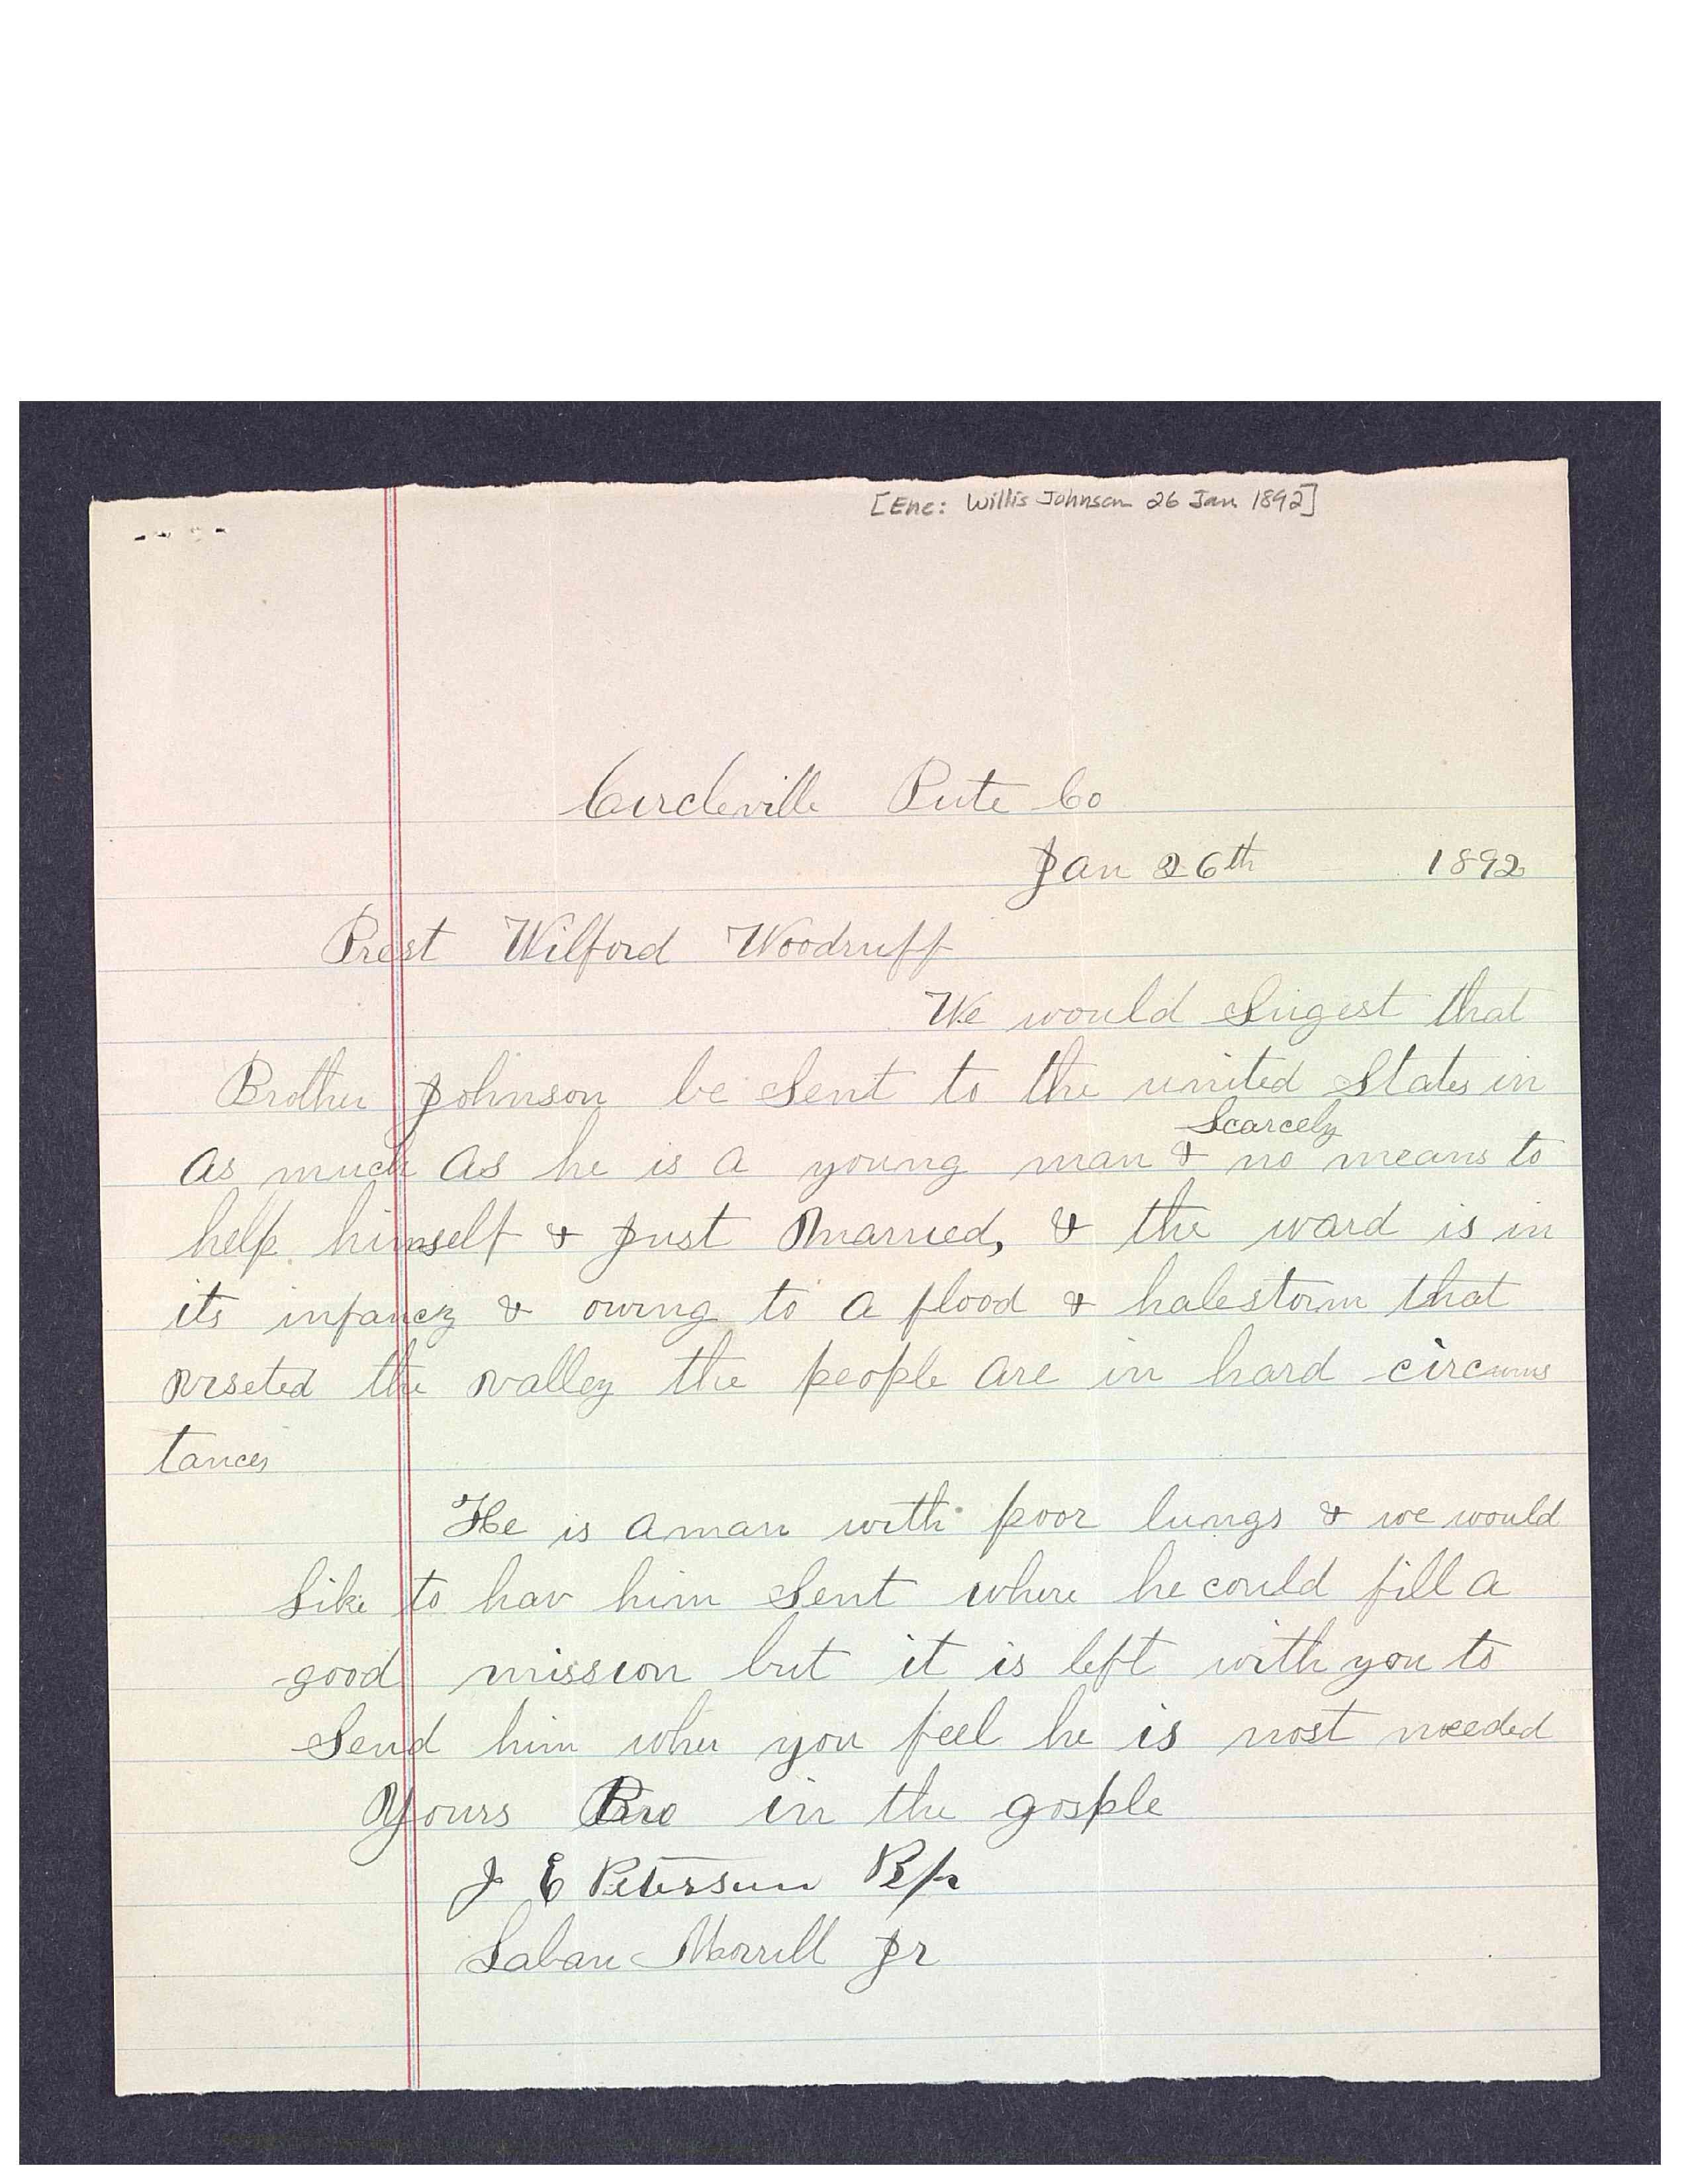 [Enc: Willis Johnson 26 Jan 1892]
Circleville Piute Co
Jan 26th 1892
Prest Wilford Woodruff
We would Sugest that
Brother Johnson be Sent to the united States in
as much as he is a young man & Scarcely no means to
help himself & Just Married, & the ward is in
its infancy & owing to a flood & halestorm that
viseted the valley the people are in hard circums
tances
He is a man with poor lungs & we would
like to hav him Sent where he could fill a
good mission but it is left with you to
Send him wher you feel he is most needed
Yours Bro in the gosple
J E Peterson Bp
Laban Morrill Jr